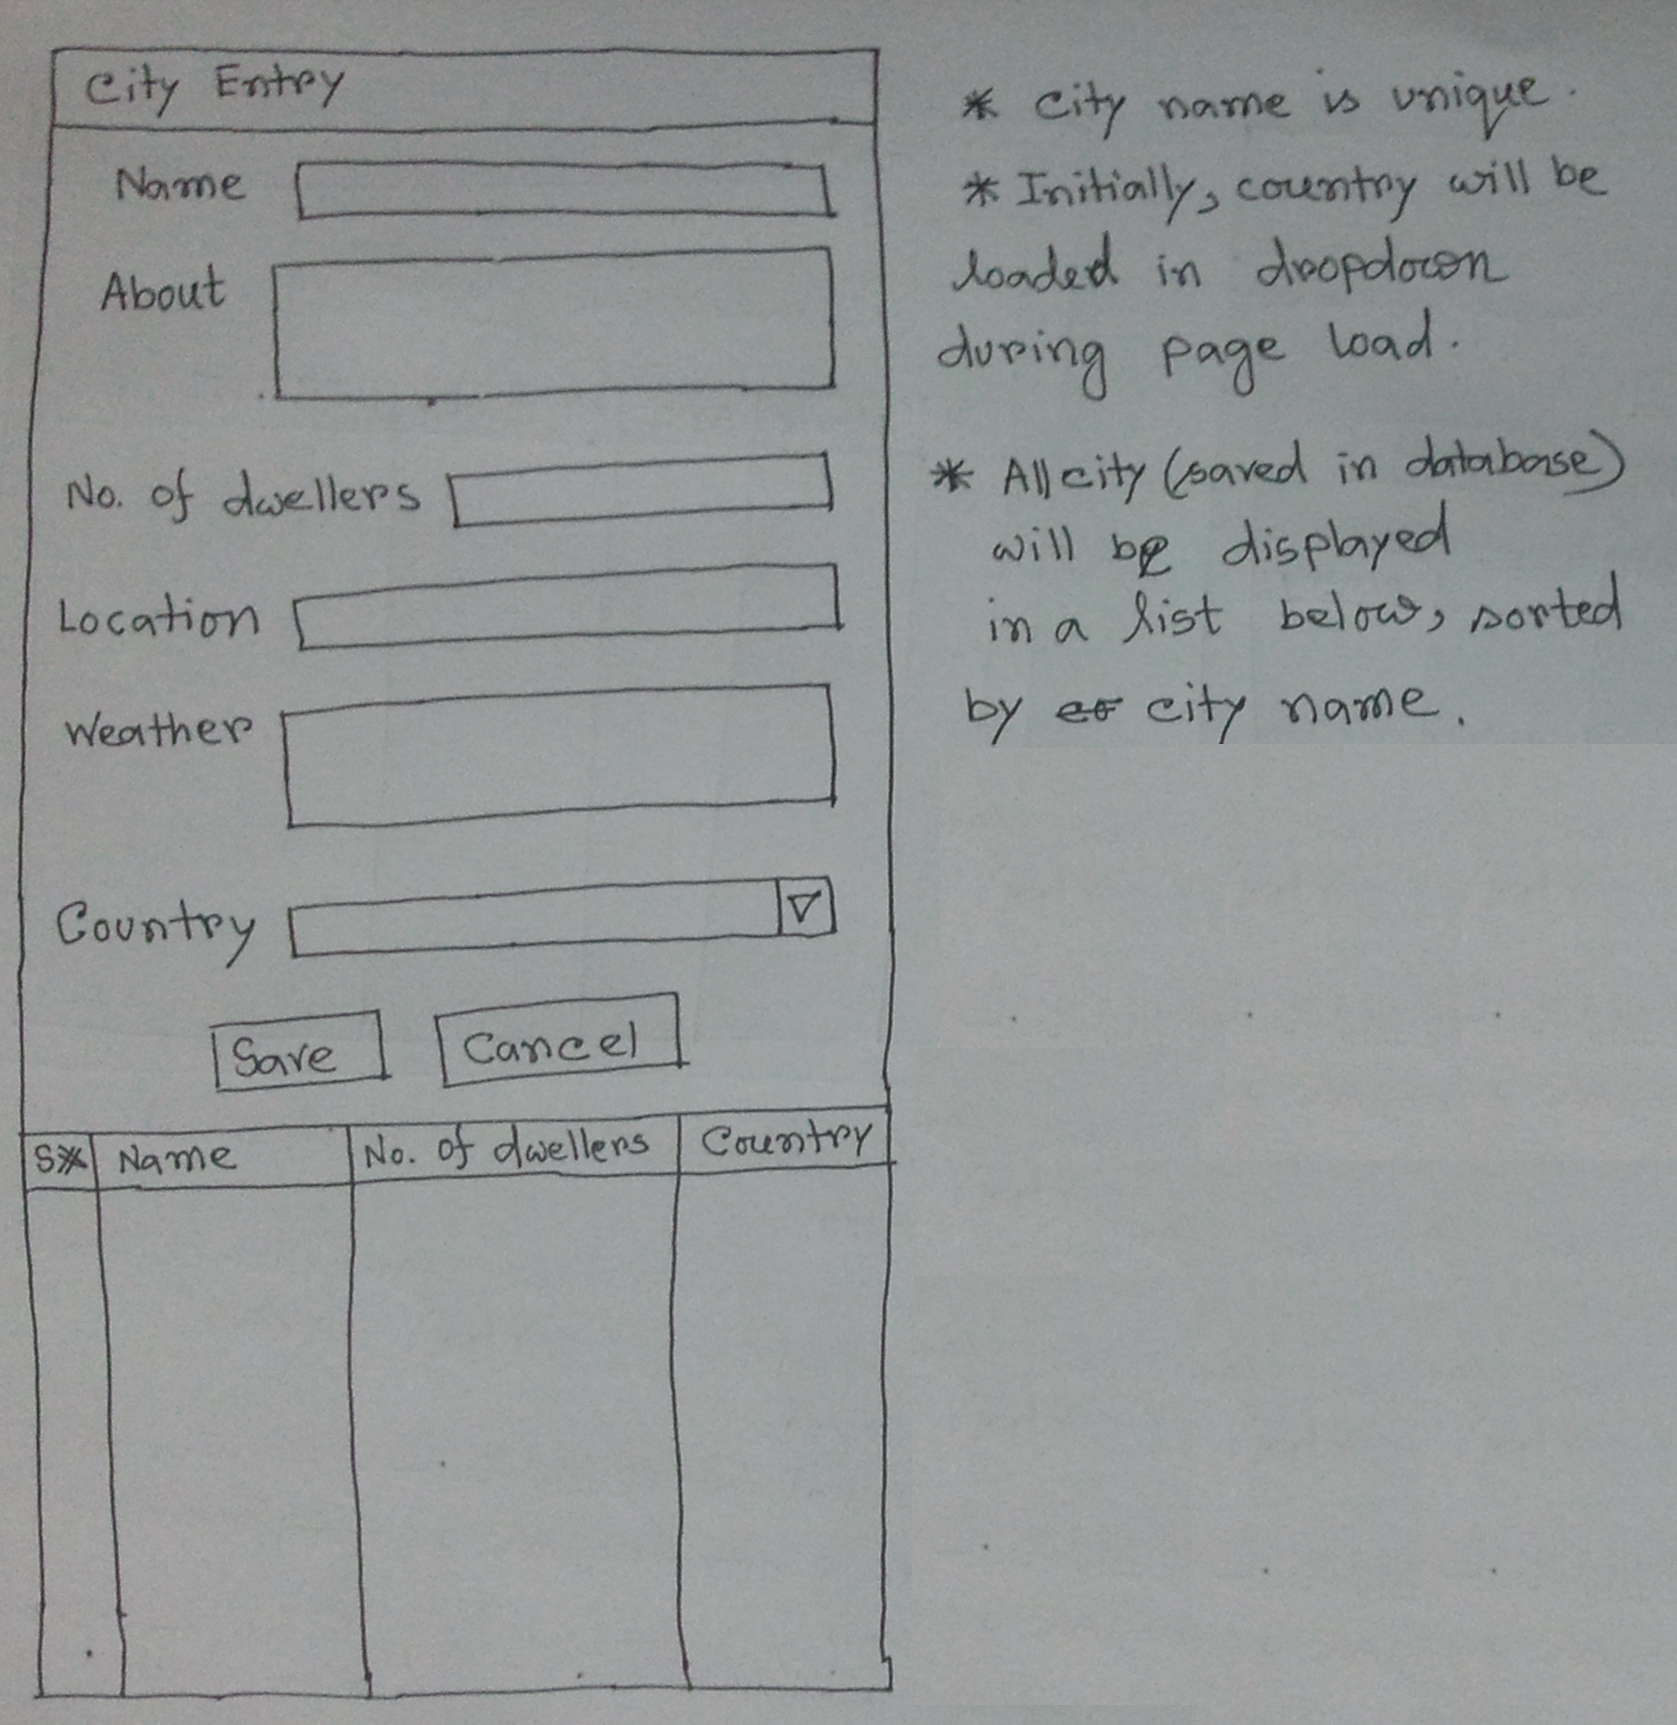 City Entry
Name
About
No. of dwellers
Location
Weather
Country
Save Cancel
Name No. of dwellers Country
* City name is unique.
* Initially, country will be
loaded in dropdown
during page load.
* All city (saved in database)
will be displayed
in a list below, sorted
by city name.